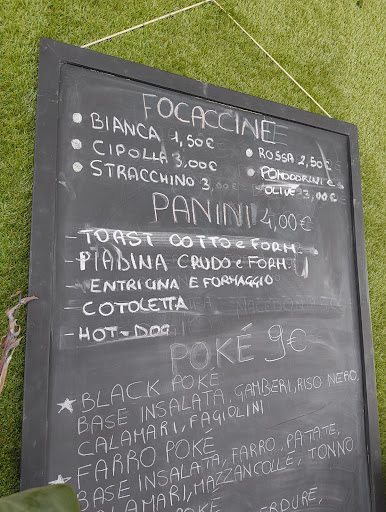 FOCACCINE
BIANCA 1,50€
CIPOLLA 3,00€
STRACCHINO 3,00
ROSSA 2,50€
POMODORINI E
OLIVE 3,00€
PANINI 4,00€
- TOAST COTTO e FORM.
- PIADINA CRUDO e FORM
- VENTRICINA E FORMAGGIO
- COTOLETTA
- HOT-DOG
POKÉ 9€
BLACK POKE
BASE INSALATA, GAMBERI, RISO NERO,
CALAMARI, FAGIOLINI
FARRO POKE
BASE INSALATA, FARRO, PATATE,
CALAMARI, MAZZANCOLLE, TONNO
POKE
VERDURE,